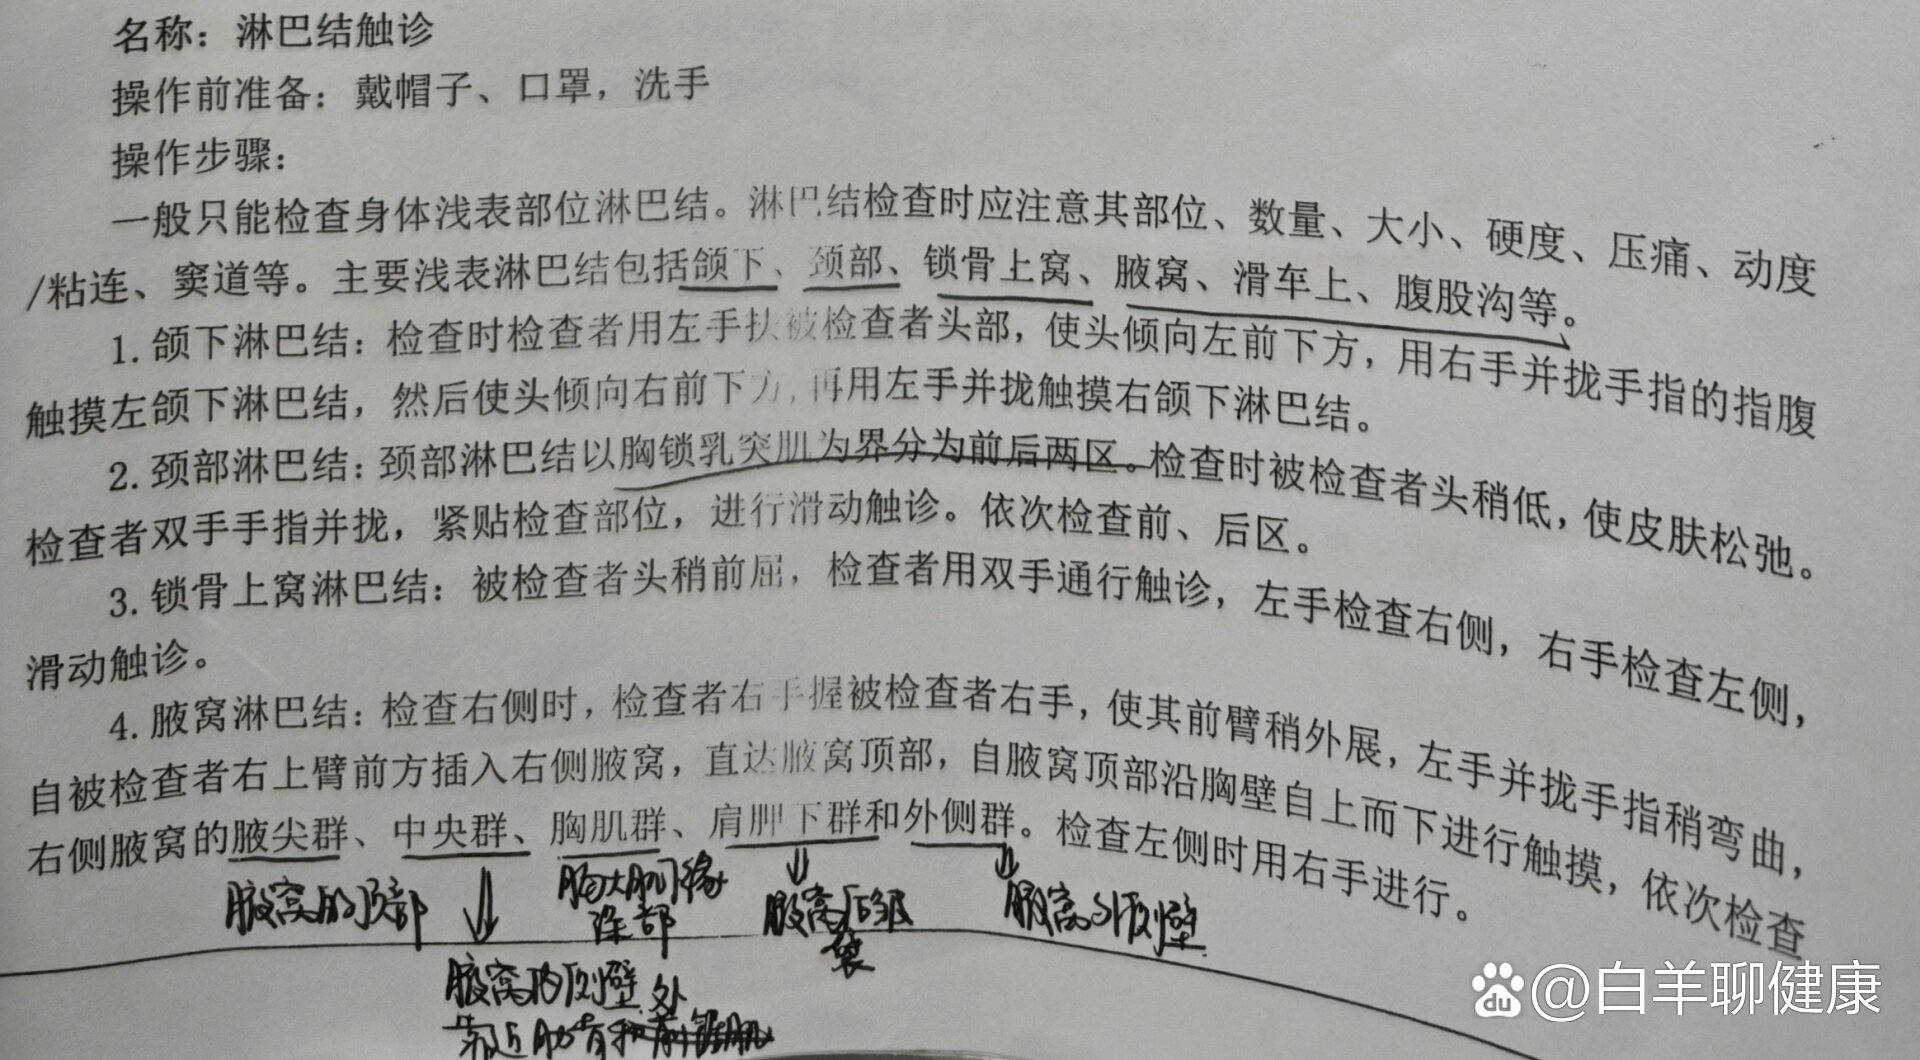 名称：淋巴结触诊
操作前准备：戴帽子、口罩，洗手
操作步骤：
一般只能检查身体浅表部位淋巴结。淋巴结检查时应注意其部位、数量、大小、硬度、压痛、动度
/粘连、窦道等。主要浅表淋巴结包括颌下、颈部、锁骨上窝、腋窝、滑车上、腹股沟等。
1.颌下淋巴结：检查时检查者用左手扶被检查者头部，使头倾向左前下方，用右手并拢手指的指腹
触摸左颌下淋巴结，然后使头倾向右前下方，再用左手并拢触摸右颌下淋巴结。
2.颈部淋巴结：颈部淋巴结以胸锁乳突肌为界分为前后两区。检查时被检查者头稍低，使皮肤松弛。
检查者双手手指并拢，紧贴检查部位，进行滑动触诊。依次检查前、后区。
3.锁骨上窝淋巴结：被检查者头稍前屈，检查者用双手通行触诊，左手检查右侧，右手检查左侧，
滑动触诊。
4.腋窝淋巴结：检查右侧时，检查者右手握被检查者右手，使其前臂稍外展，左手并拢手指稍弯曲，
自被检查者右上臂前方插入右侧腋窝，直达腋窝顶部，自腋窝顶部沿胸壁自上而下进行触摸，依次检查
右侧腋窝的腋尖群、中央群、胸肌群、肩胛下群和外侧群。检查左侧时用右手进行。
腋窝的顶部
胸大肌下缘
深部
腋窝后皱
襞
腋窝外侧壁
腋窝内侧壁
靠近肋骨和前锯肌
处
du @白羊聊健康